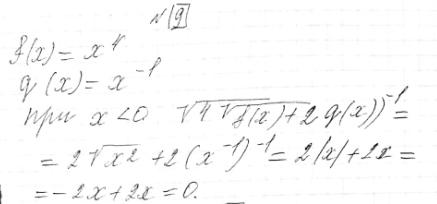 N[9]
f(x) = x⁴
g(x) = x⁻¹
при x<0 √4√f(x)+2 g(x))⁻¹ =
= 2√x² + 2(x⁻¹)⁻¹ = 2|x| + 2x =
= -2x + 2x = 0.